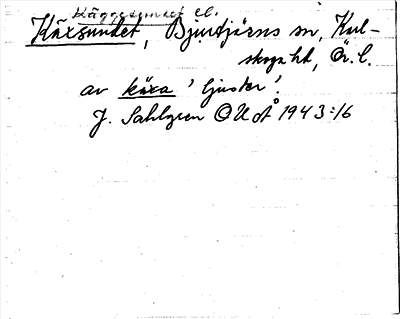 Käggesundet el.
Käxsundet, Bjurtjärns sn, Karl-
skoga hd, Ör. l.
av käxa 'ljuster'.
J. Sahlgren OUÅ 1943:16